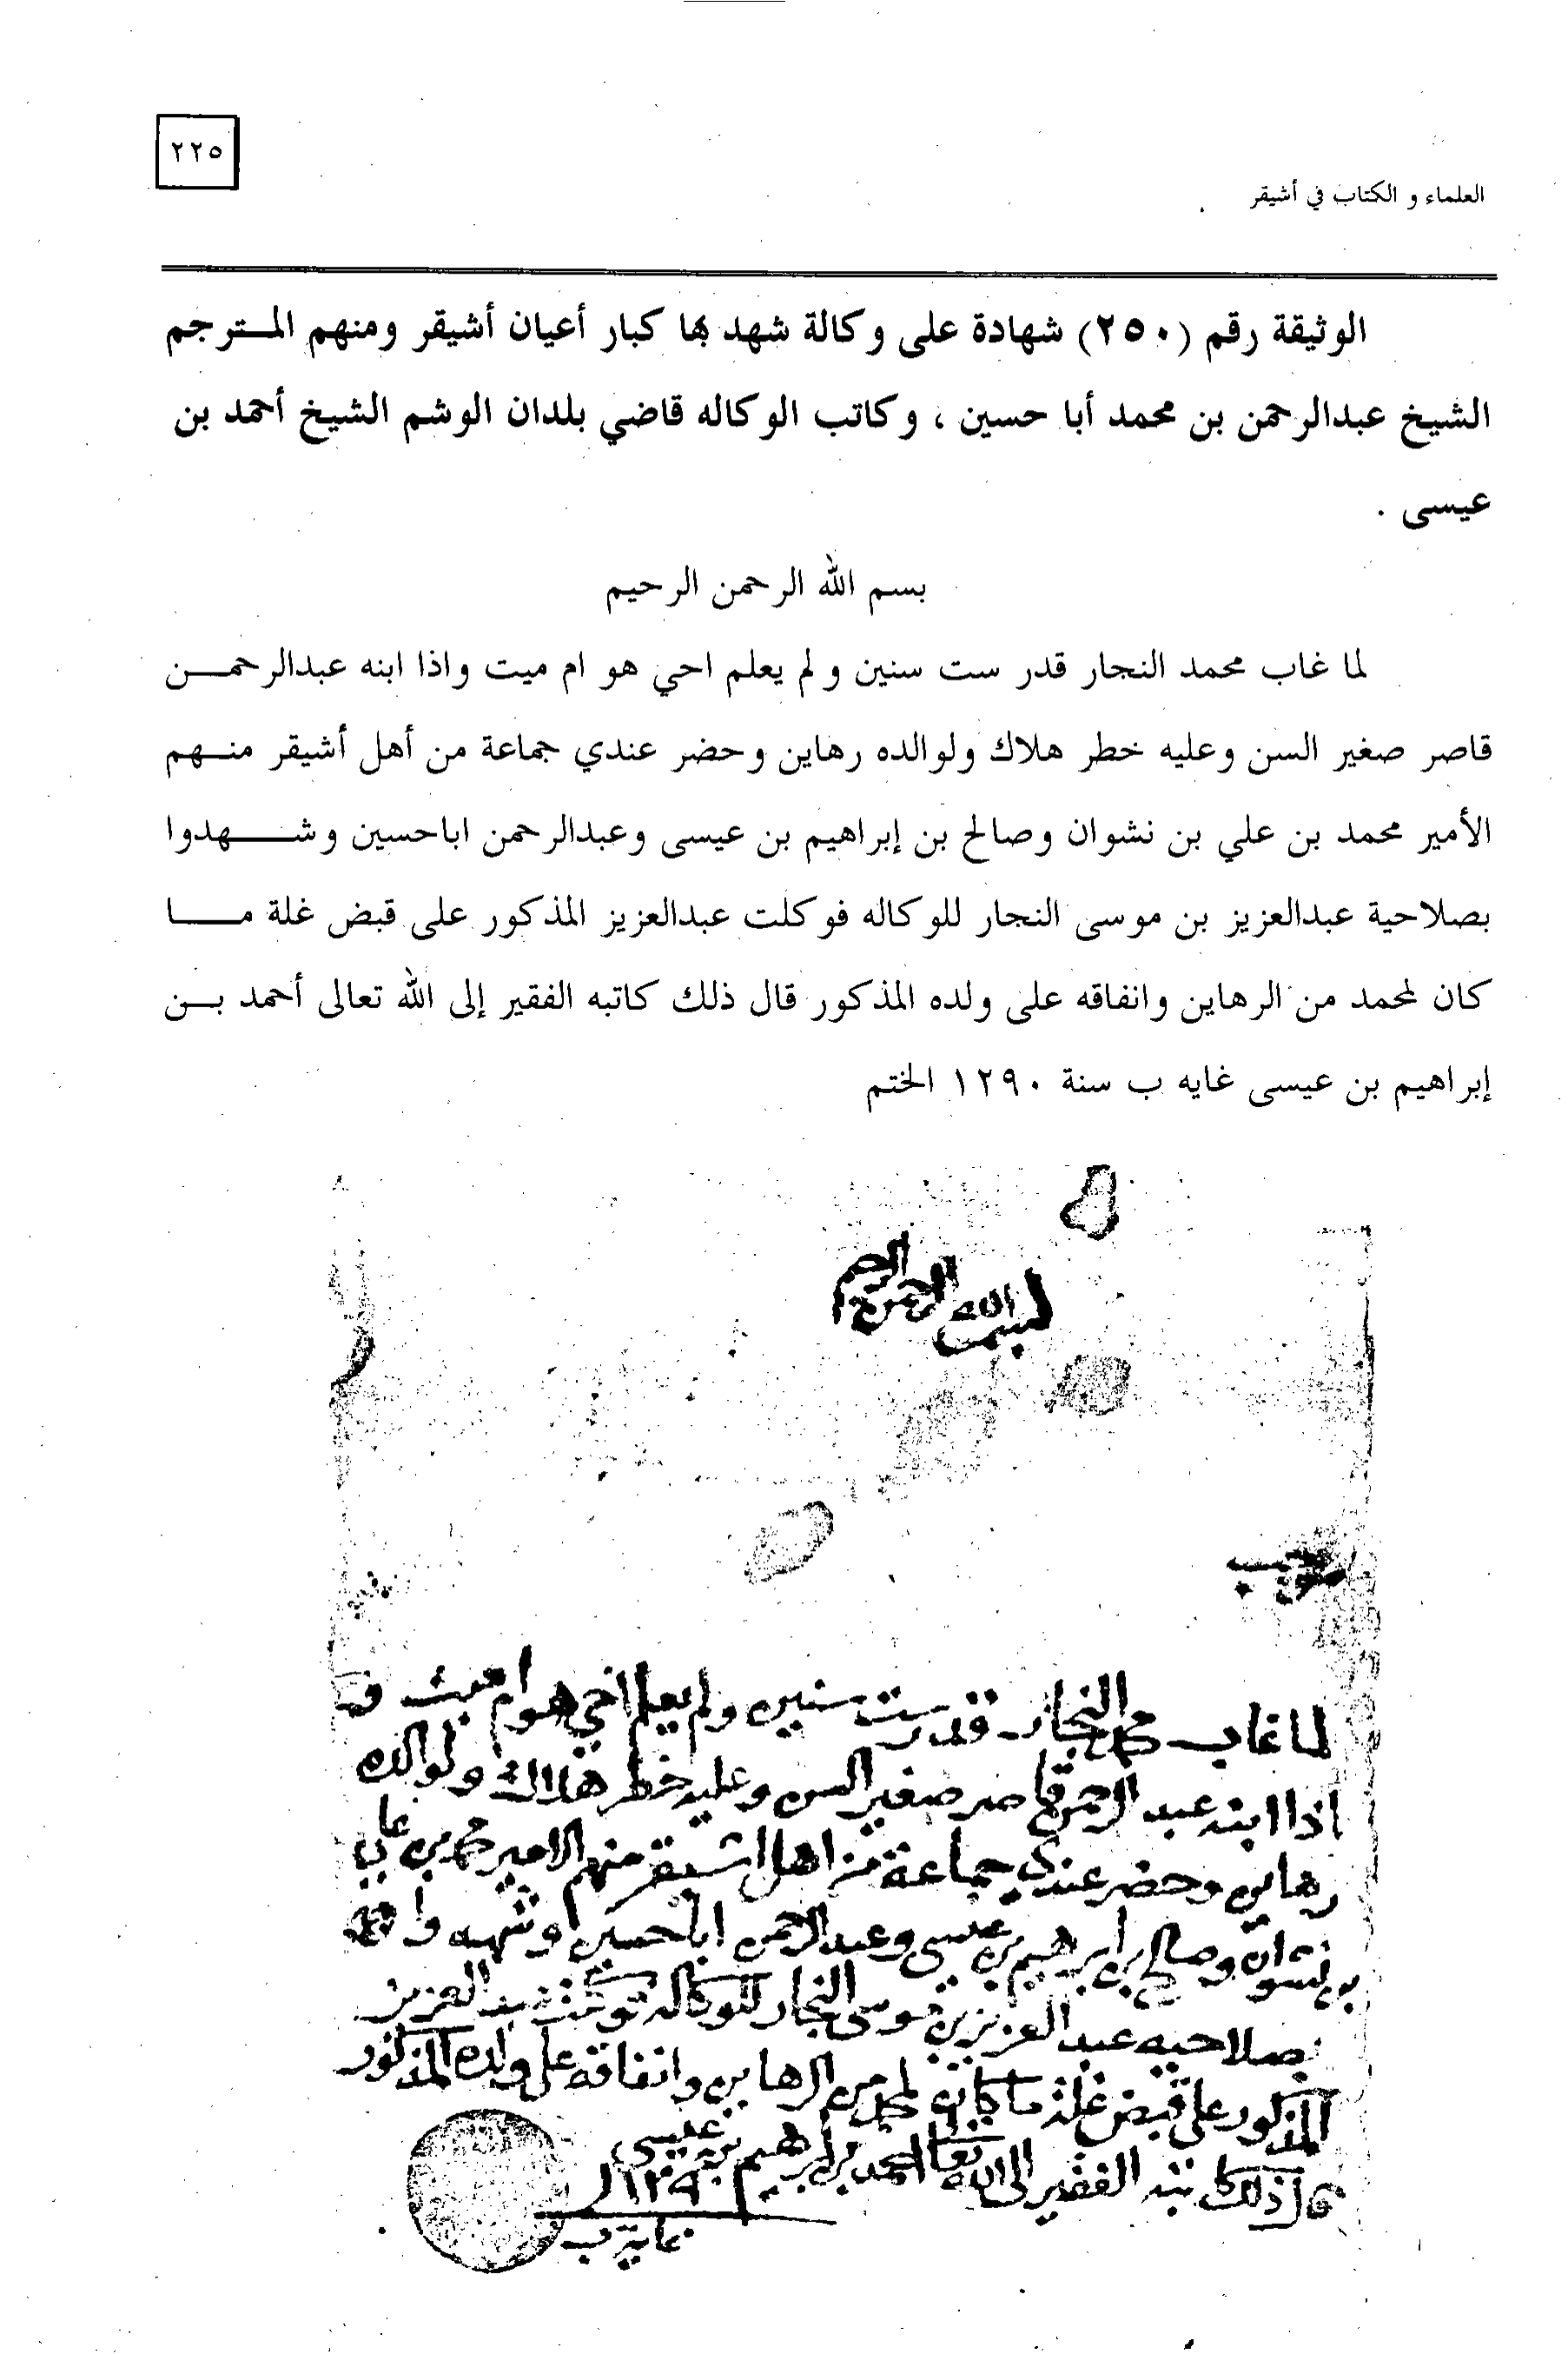 ٢٢٥
العلماء و الكتاب في أشيقر
الوثيقة رقم (٢٥٠) شهادة على وكالة شهد بها كبار أعيان أشيقر ومنهم المترجم
الشيخ عبدالرحمن بن محمد أبا حسين ، وكاتب الوكاله قاضي بلدان الوشم الشيخ أحمد بن
عيسى .
بسم الله الرحمن الرحيم
لما غاب محمد النجار قدر ست سنين ولم يعلم احي هو ام ميت واذا ابنه عبدالرحمن
قاصر صغير السن وعليه خطر هلاك ولوالده رهاين وحضر عندي جماعة من أهل أشيقر منهم
الأمير محمد بن علي بن نشوان وصالح بن إبراهيم بن عيسى وعبدالرحمن اباحسين وشهدوا
بصلاحية عبدالعزيز بن موسى النجار للوكاله فوكلت عبدالعزيز المذكور على قبض غلة ما
كان لمحمد من الرهاين وانفاقه على ولده المذكور قال ذلك كاتبه الفقير إلى الله تعالى أحمد بن
إبراهيم بن عيسى غايه ب سنة ١٢٩٠ الختم
بسم الله الرحمن الرحيم
لما غاب محمد النجار قدر ست سنين ولم يعلم احي هو ام ميت و
اذا ابنه عبد الرحمن قاصر صغير السن وعليه خطر هلاك ولوالده
رهاين وحضر عندي جماعة من اهل اشيقر منهم الامير محمد بن علي
بن نشوان وصالح بن ابرهيم بن عيسى وعبد الرحمن اباحسين وشهدوا
بصلاحيه عبد العزيز بن موسى النجار للوكاله فوكلت عبد العزيز
المذكور على قبض غلة ما كان لمحمد من الرهاين وانفاقه على ولده المذكور
قال ذلك كاتبه الفقير الى الله تعالى احمد بن ابرهيم بن عيسى
١٢٩٠
غاية ب